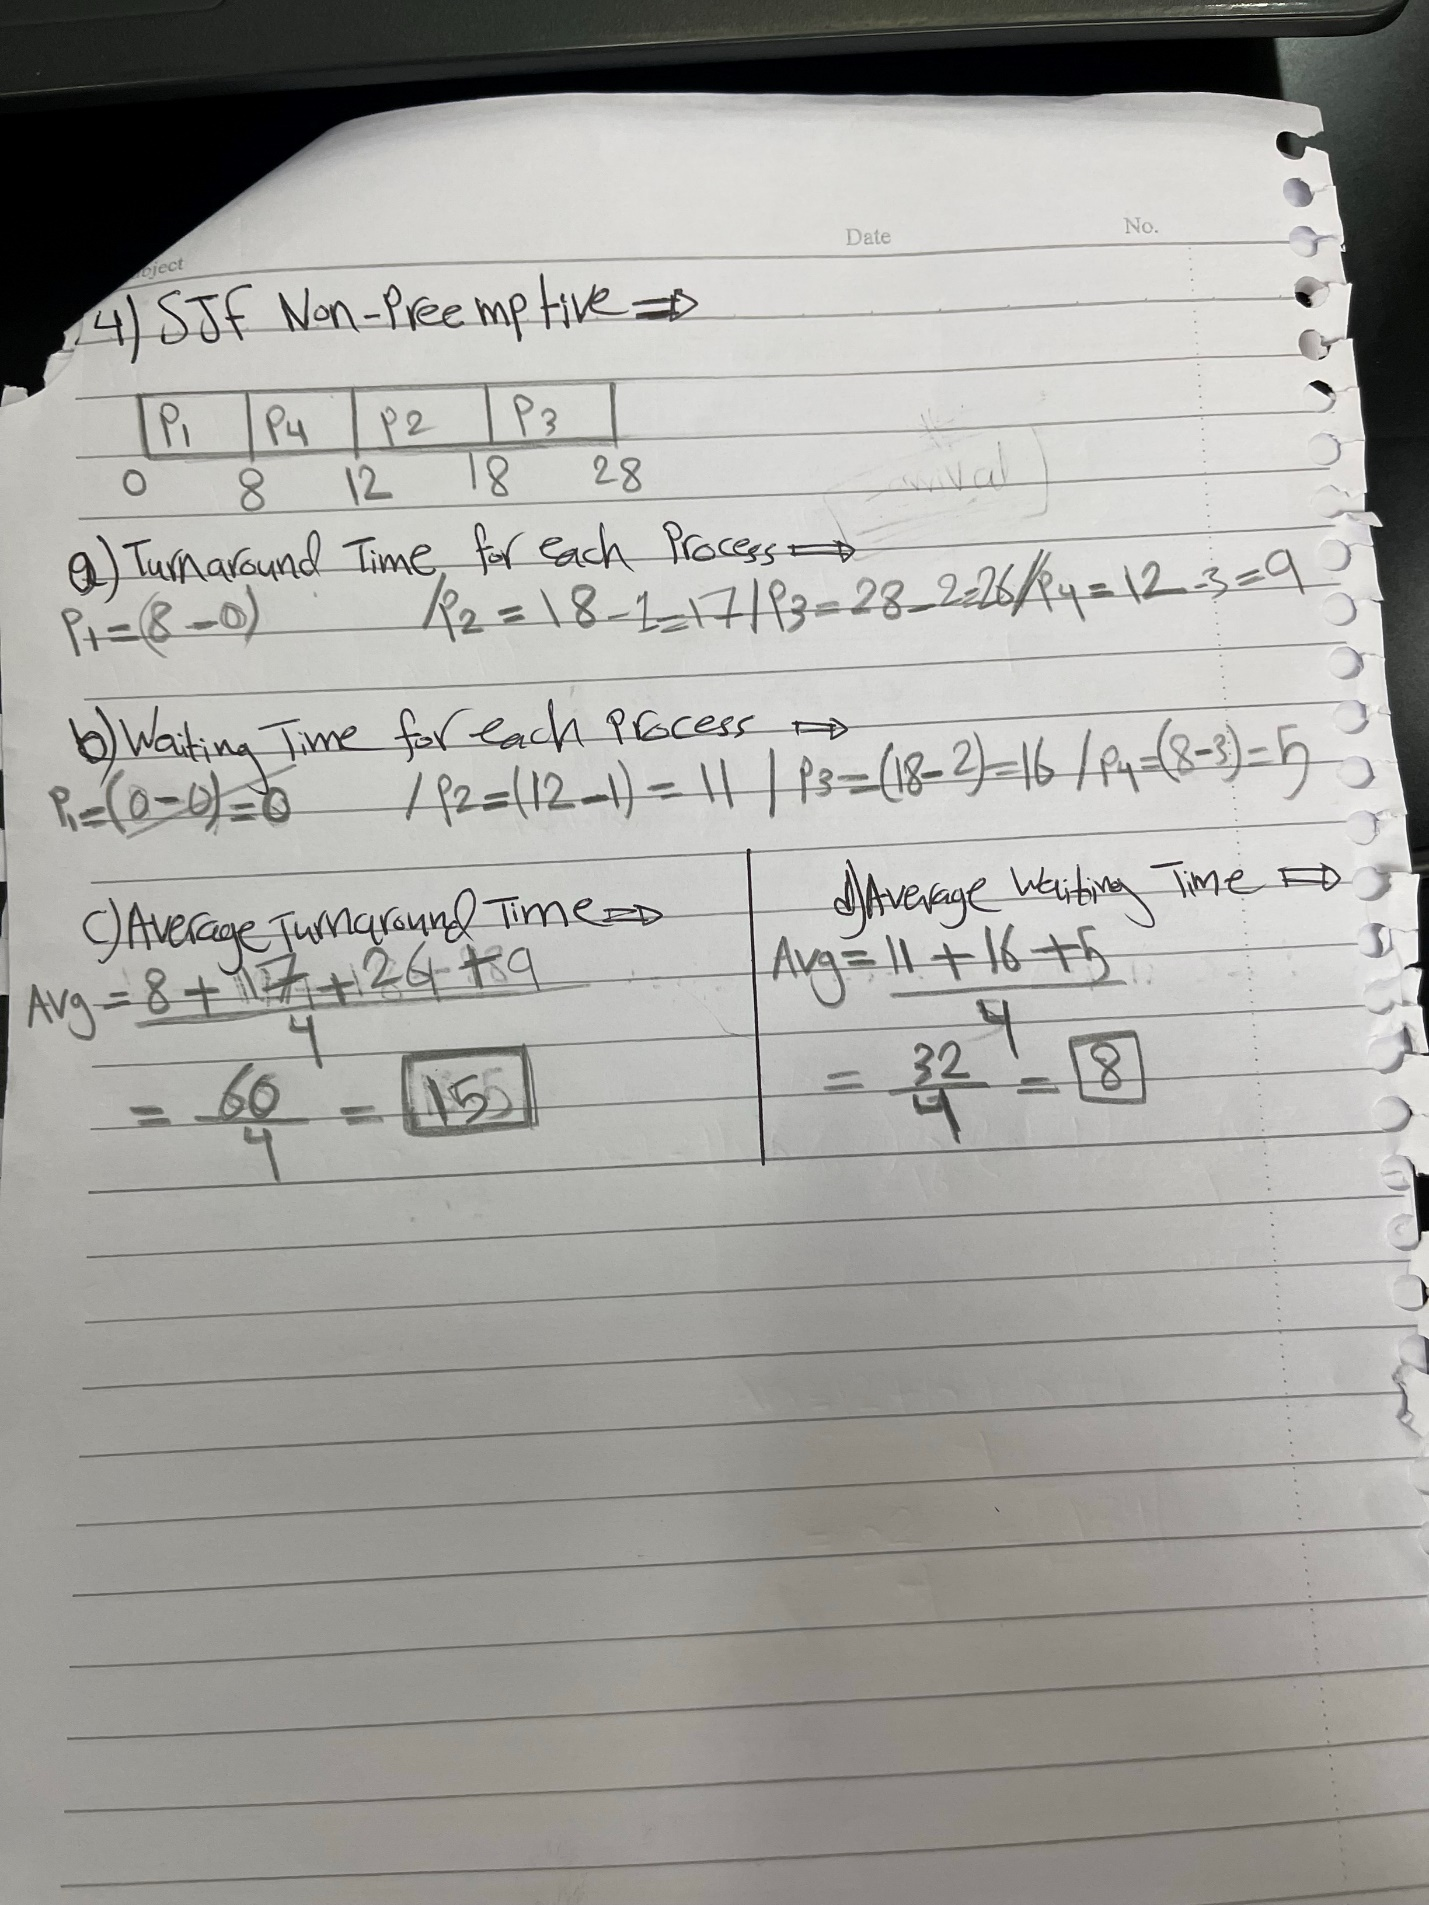 bject
Date
No.
4) SJF Non-Preemptive ⇒
P1 P4 P2 P3
0 8 12 18 28
a) Turnaround Time for each Process ⇒
P1=(8-0) /P2=18-1=17/P3=28-2=26//P4=12-3=9
b) Waiting Time for each Process ⇒
P1=(0-0)=0 /P2=(12-1)=11 / P3=(18-2)=16 /P4=(8-3)=5
c) Average Turnaround Time ⇒
Avg = 8+17+26+9
4
= 60
4
= 15
d) Average Waiting Time ⇒
Avg = 11+16+5
4
= 32
4
= 8